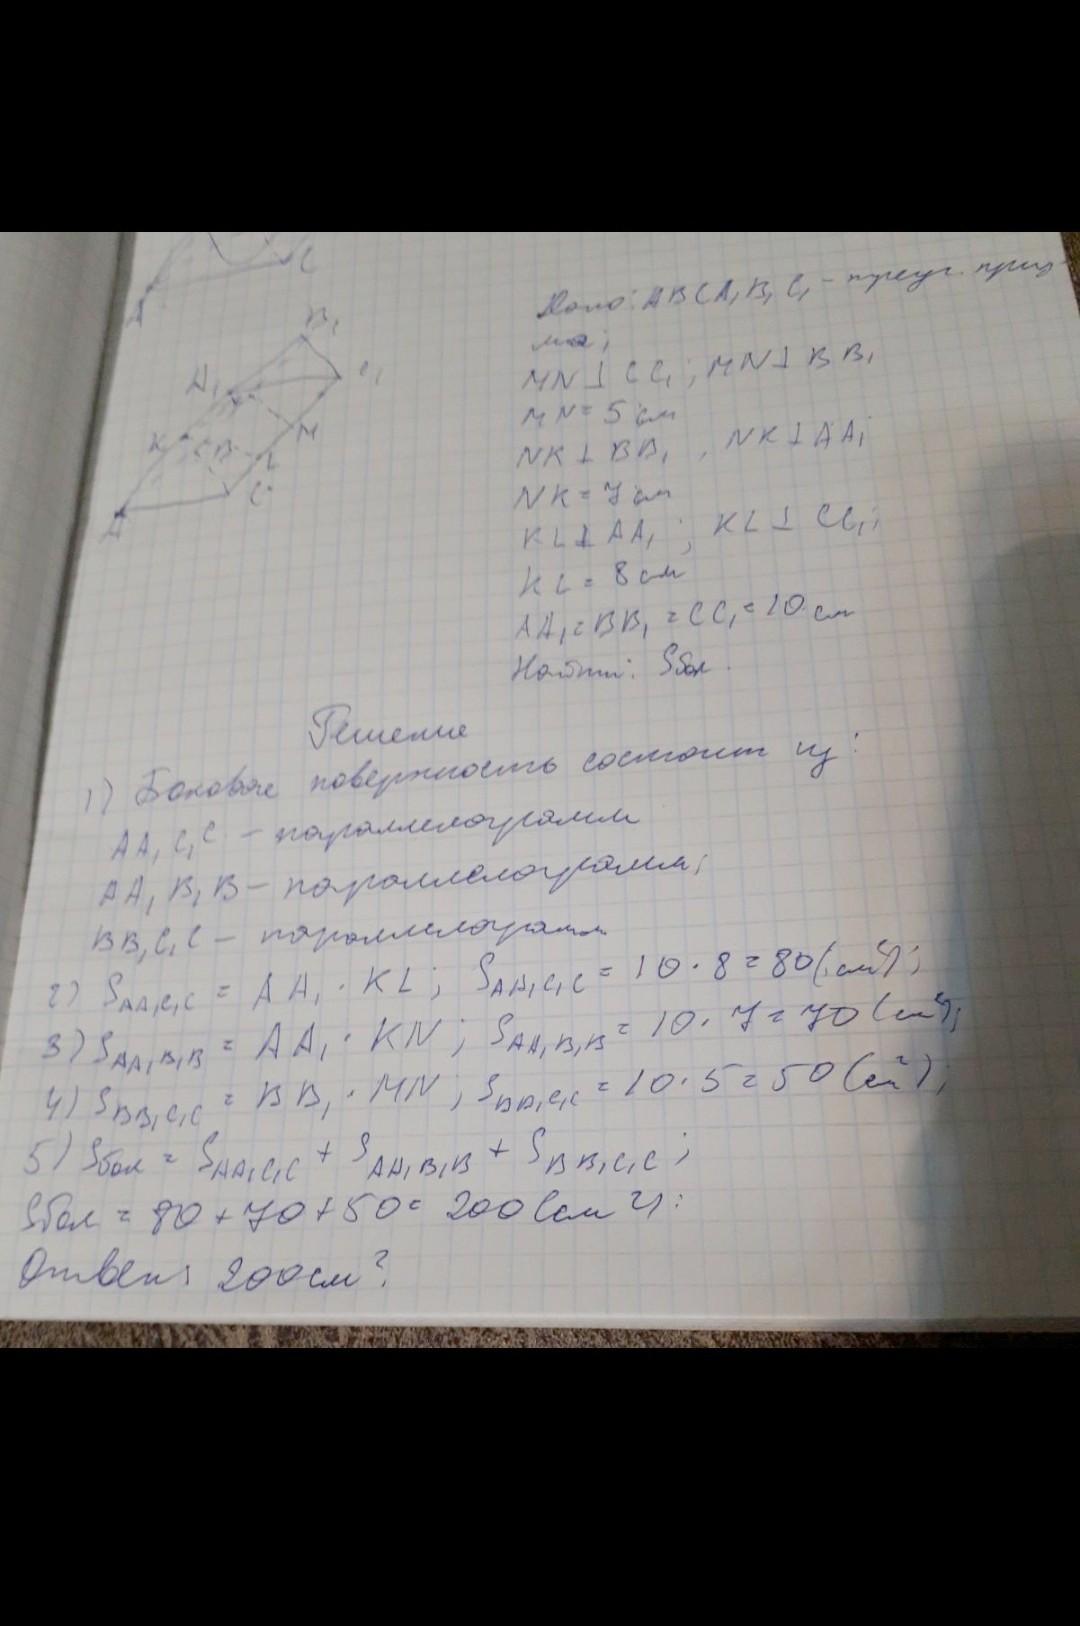 C
A
B₁
A₁
C₁
K
B
M
L
C
A
Дано: ABCA₁B₁C₁ - треуг. приз-
ма;
MN ⊥ CC₁; MN ⊥ BB₁
MN = 5 см
NK ⊥ BB₁, NK ⊥ AA₁
NK = 7 см
KL ⊥ AA₁; KL ⊥ CC₁;
KL = 8 см
AA₁ = BB₁ = CC₁ = 10 см
Найти: Sбок.
Решение
1) Боковая поверхность состоит из:
AA₁C₁C - параллелограмм
AA₁B₁B - параллелограмм;
BB₁C₁C - параллелограмм
2) SAA₁C₁C = AA₁ · KL; SAA₁C₁C = 10 · 8 = 80 (см²);
3) SAA₁B₁B = AA₁ · KN; SAA₁B₁B = 10 · 7 = 70 (см²);
4) SBB₁C₁C = BB₁ · MN; SBB₁C₁C = 10 · 5 = 50 (см²);
5) Sбок = SAA₁C₁C + SAA₁B₁B + SBB₁C₁C;
Sбок = 80 + 70 + 50 = 200 (см²).
Ответ: 200 см².